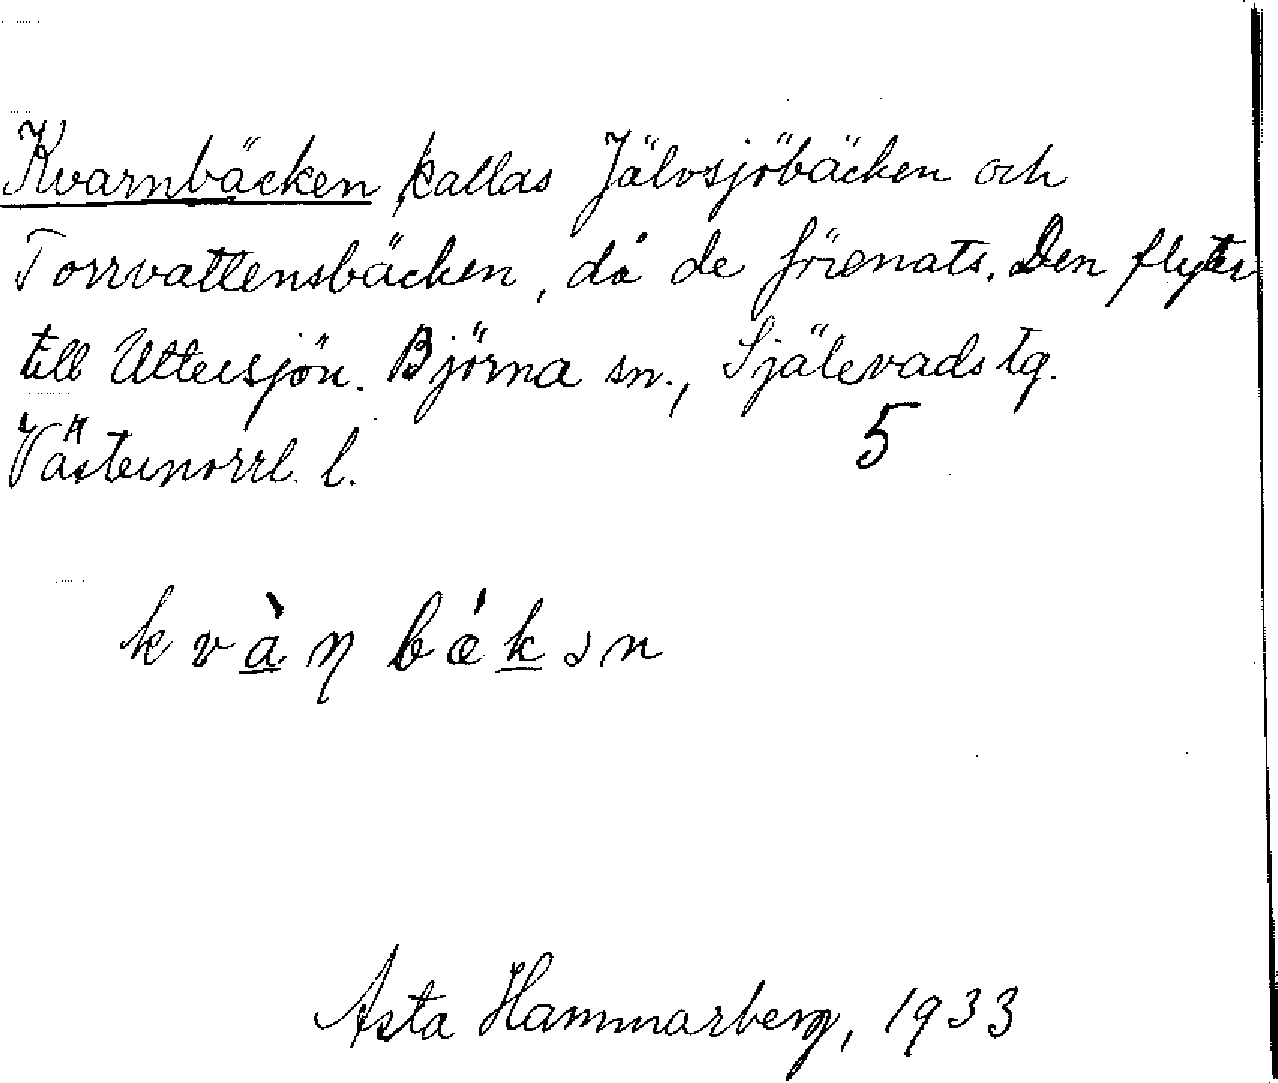 Kvarnbäcken kallas Jälvsjöbäcken och
Torrvattensbäcken, då de förenats. Den flyter
till Uttersjön. Björna sn., Själevads tg.
Västernorrl. l. 5
kvàŋ bǽkən
Asta Hammarberg, 1933